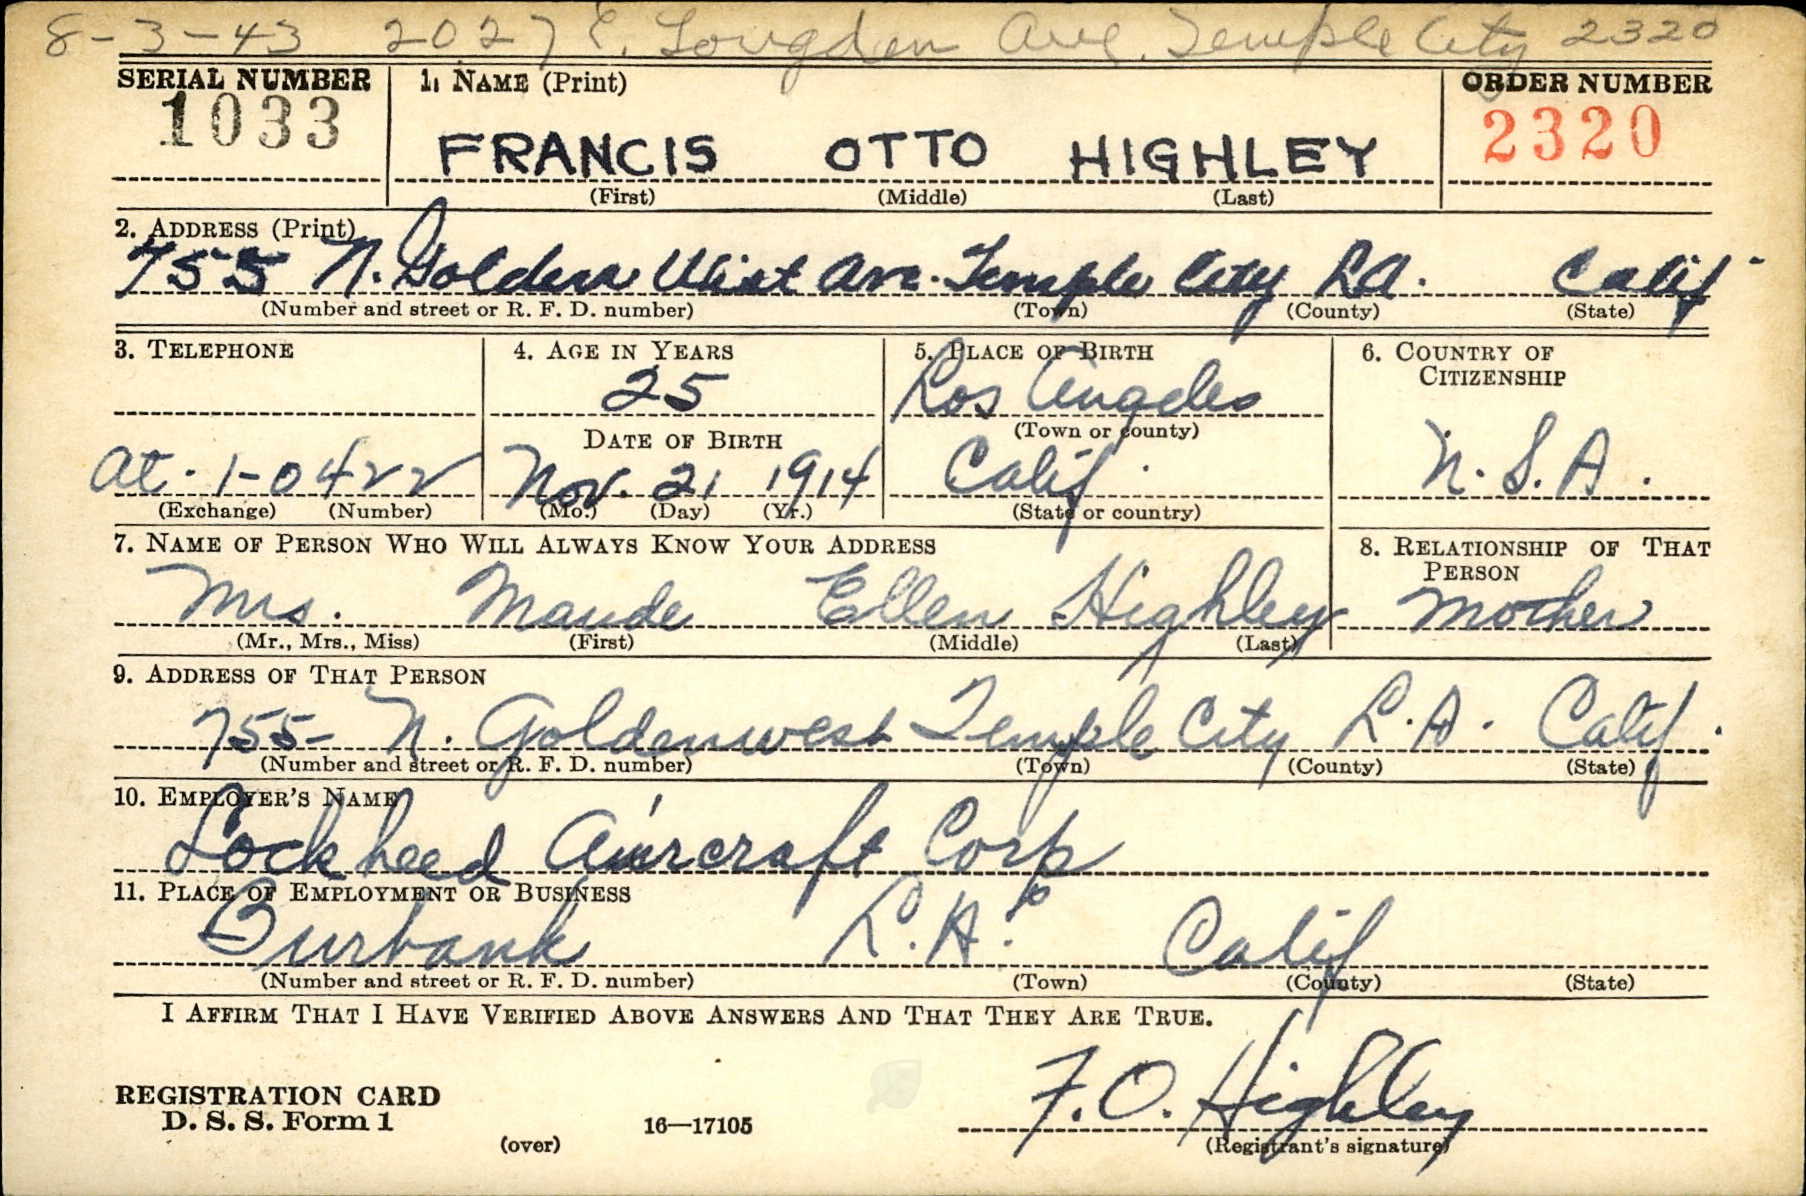 8-3-43 2027 E. Longden Ave. Temple City 2320
SERIAL NUMBER 1. NAME (Print) ORDER NUMBER
1033 FRANCIS OTTO HIGHLEY 2320
(First) (Middle) (Last)
2. ADDRESS (Print)
755 N. Golden West Ave. Temple City LA. Calif
(Number and street or R. F. D. number) (Town) (County) (State)
3. TELEPHONE 4. AGE IN YEARS 5. PLACE OF BIRTH 6. COUNTRY OF CITIZENSHIP
25 Los Angeles
DATE OF BIRTH (Town or county)
At. 1-0422 Nov. 21 1914 Calif. U.S.A.
(Exchange) (Number) (Mo.) (Day) (Yr.) (State or country)
7. NAME OF PERSON WHO WILL ALWAYS KNOW YOUR ADDRESS 8. RELATIONSHIP OF THAT PERSON
Mrs. Maude Ellen Highley Mother
(Mr., Mrs., Miss) (First) (Middle) (Last)
9. ADDRESS OF THAT PERSON
755- N. Goldenwest Temple City L.A. Calif.
(Number and street or R. F. D. number) (Town) (County) (State)
10. EMPLOYER'S NAME
Lockheed Aircraft Corp
11. PLACE OF EMPLOYMENT OR BUSINESS
Burbank L.A. Calif
(Number and street or R. F. D. number) (Town) (County) (State)
I AFFIRM THAT I HAVE VERIFIED ABOVE ANSWERS AND THAT THEY ARE TRUE.
F. O. Highley
REGISTRATION CARD
D. S. S. Form 1 (over) 16—17105 (Registrant's signature)